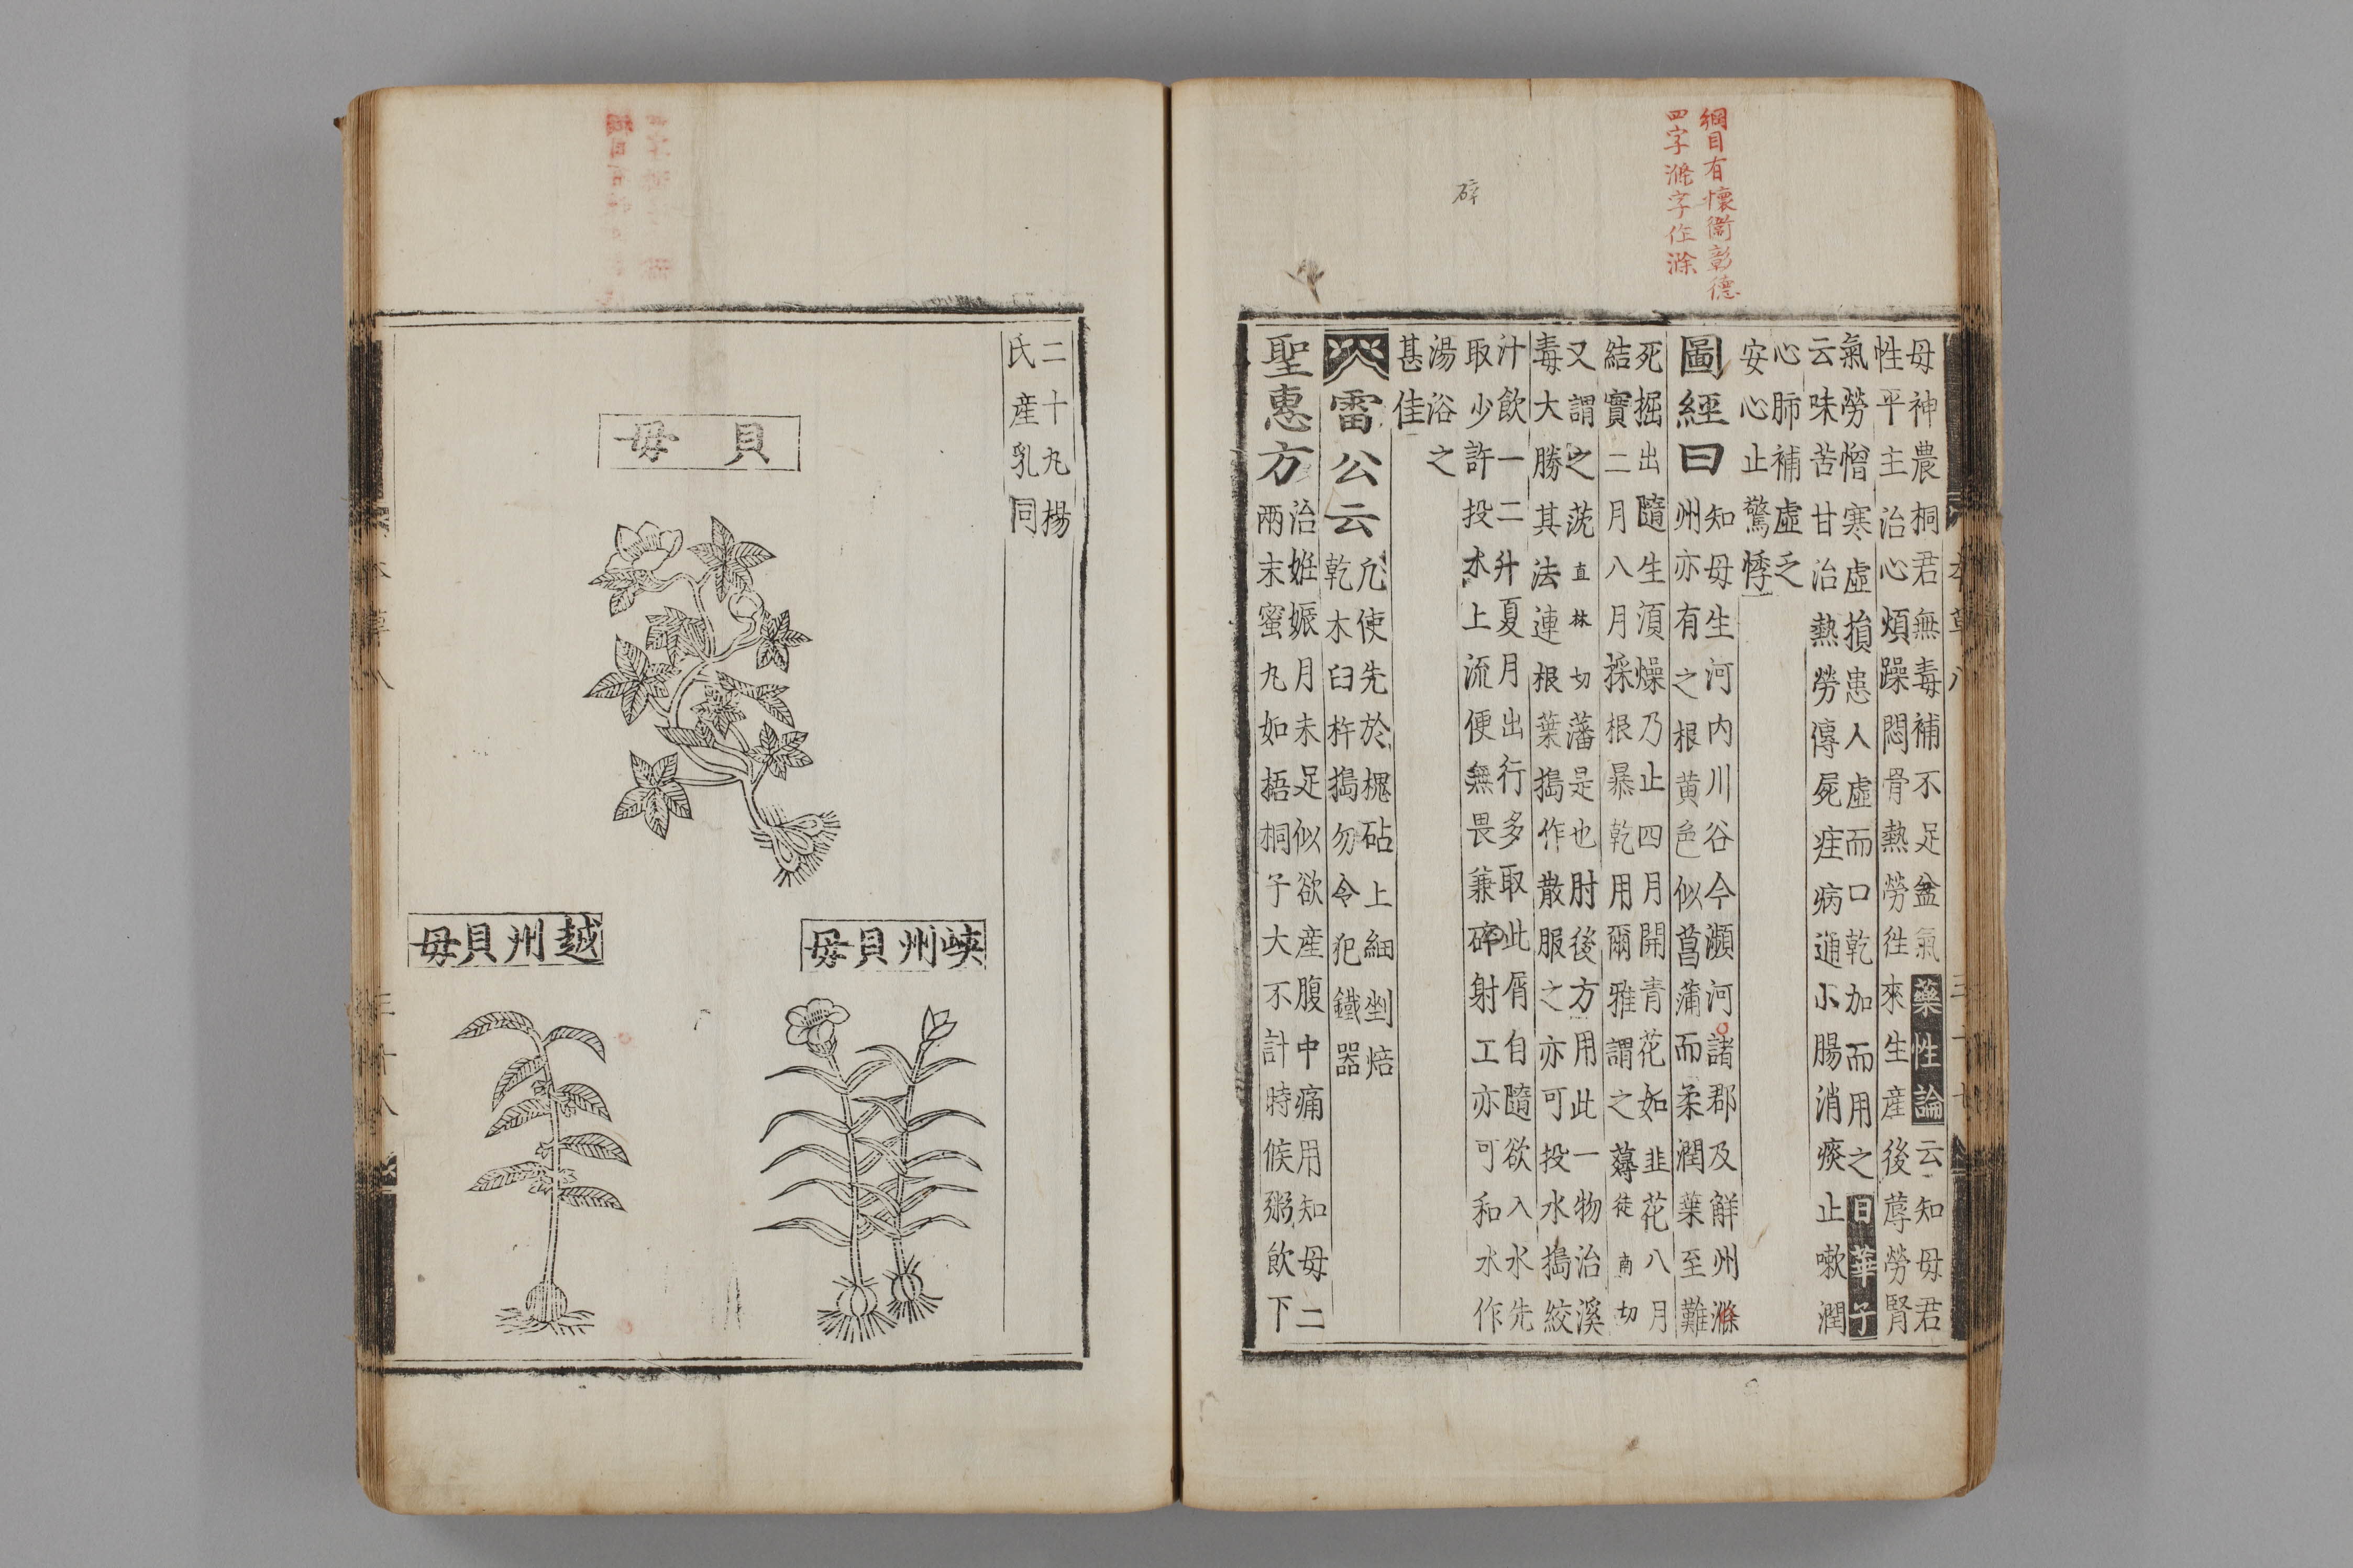 綱目有懷衞彰德
四字滁字作滁
碎
母神農桐君無毒補不足益氣藥性論云知母君
性平主治心煩躁悶骨熱勞徃來生産後蓐勞腎
氣勞憎寒虛損患人虛而口乾加而用之日華子
云味苦甘治熱勞傳屍疰病通小腸消痰止嗽潤
心肺補虛乏
安心止驚悸
圖經曰
知母生河内川谷今瀕河諸郡及觧州滁
州亦有之根黄色似菖蒲而柔潤葉至難
死掘出隨生湏燥乃止四月開青花如韭花八月
結實二月八月採根暴乾用爾雅謂之薚徒南切
又謂之莐直林切藩是也肘後方用此一物治溪
毒大勝其法連根葉搗作散服之亦可投水搗絞
汁飲一二升夏月出行多取此屑自隨欲入水先
取少許投水上流便無畏兼碎射工亦可和水作
湯浴之
甚佳
雷公云
凡使先於槐砧上細剉焙
乾木臼杵搗勿令犯鐵器
聖惠方
治姙娠月未足似欲産腹中痛用知母二
兩末蜜丸如捂桐子大不計時候粥飲下
本草八
三十七
二十丸楊
氏産乳同
貝母
峽州貝母
越州貝母